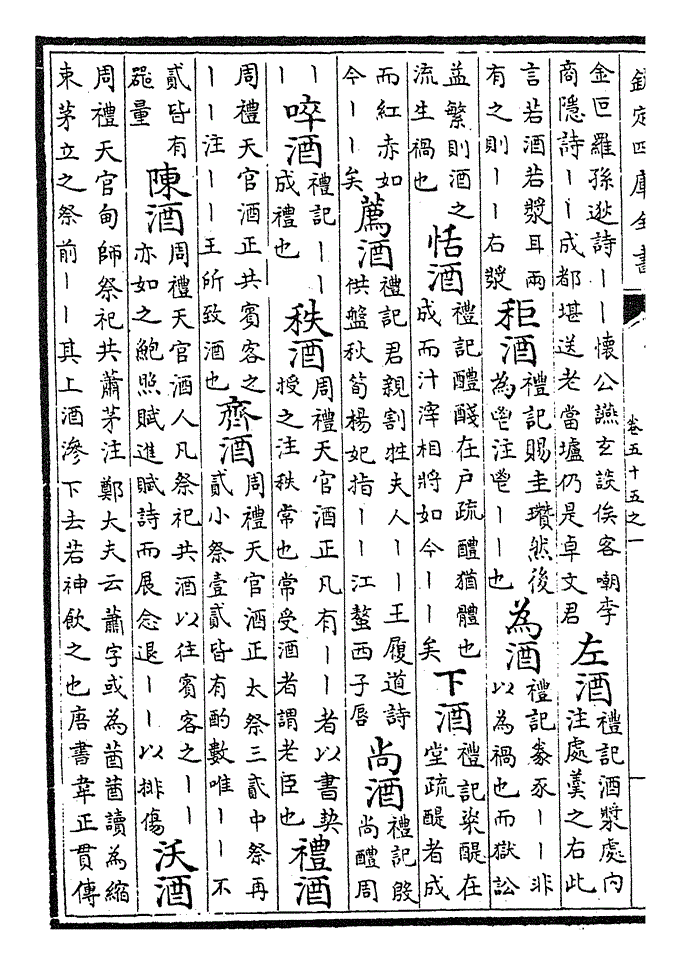 欽定四庫全書
卷五十五之一
金叵羅孫逖詩丨丨懷公讌玄談俟客嘲李
商隱詩丨丨成都堪送老當壚仍是卓文君
左酒
禮記酒漿處向
注處羹之右此
言若酒若漿耳兩
有之則丨丨右漿
秬酒
禮記賜圭瓚然後
為鬯注鬯丨丨也
為酒
禮記豢豕丨丨非
以為禍也而獄訟
益繁則酒之
流生禍也
恬酒
禮記醴醆在戶疏醴猶體也
成而汁滓相將如今丨丨矣
下酒
禮記粢醍在
堂疏醍者成
而紅赤如
今丨丨矣
薦酒
禮記君親割牲夫人丨丨王履道詩
供盤秋筍楊妃指丨丨江螯西子唇
尚酒
禮記殷
尚醴周
丨
丨
啐酒
禮記丨丨
成禮也
秩酒
周禮天官酒正凡有丨丨者以書契
授之注秩常也常受酒者謂老臣也
禮酒
周禮天官酒正共賓客之
丨丨注丨丨王所致酒也
齊酒
周禮天官酒正大祭三貳中祭再
貳小祭壹貳皆有酌數唯丨丨不
貳皆有
器量
陳酒
周禮天官酒人凡祭祀共酒以往賓客之丨丨
亦如之鮑照賦進賦詩而展念退丨丨以排傷
沃酒
周禮天官甸師祭祀共蕭茅注鄭大夫云蕭字或為莤莤讀為縮
束茅立之祭前丨丨其上酒滲下去若神飲之也唐書韋正貫傳